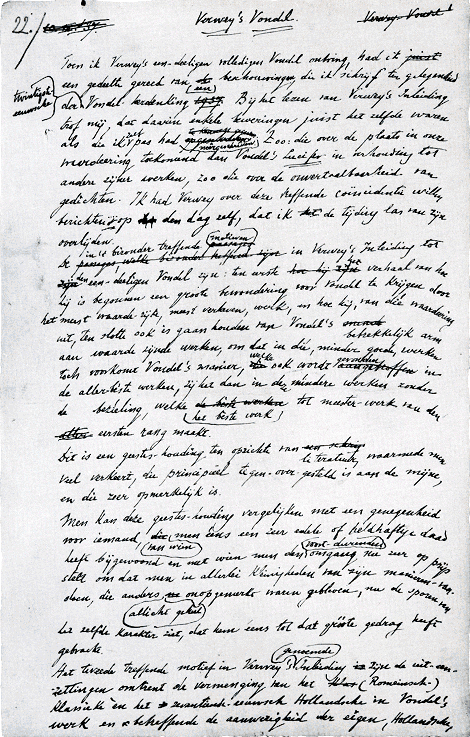 22./ Verwey's Vondel. Verwey-Vondel
Toen ik Verwey's een-deeligen volledigen Vondel ontving, had ik juist
een gedeelte gereed van de beschouwingen, die ik schrijf ten gelegenheid
der Vondel-herdenking. Bij het lezen van Verwey's Inleiding
trof mij, dat daarin enkele beweringen juist het zelfde waren
als die ik pas had. Zoo: die over de plaats in onze
waardeering toekomend aan Vondel's Lucifer in verhouding tot
andere zijner werken, zoo die over de onvertaalbaarheid van
gedichten. Ik had Verwey over deze treffende coïncidentie willen
berichten op den dag zelf, dat ik de tijding las van zijn
overlijden.
De in 't bizonder treffende motieven in Verwey's Inleiding tot
den een-deeligen Vondel zijn: ten eerste het verhaal van hoe
hij is begonnen een groote bewondering voor Vondel te krijgen door
het meest waarde-rijke, meest verheven, werk, en hoe hij, van die waardeering
uit, ten slotte ook is gaan houden van Vondel's betrekkelijk arm
aan waarde zijnde werken, om dat in die, minder goede, werken
toch voorkomt Vondel's manier, welke ook wordt gevonden in
de aller-beste werken, zij het dan in de mindere werken zonder
de bezieling, welke het beste werk tot meester-werk van den
eersten rang maakt.
Dit is een geestes-houding, ten opzichte van literatuur, waarmede men
veel verkeert, die principieel tegen-over-gesteld is aan de mijne,
en die zeer opmerkelijk is.
Men kan deze geestes-houding vergelijken met een genegenheid
voor iemand, van wien men eens een zeer edele of heldhaftige daad
heeft bijgewoond en met wien men den voort-durenden omgang nu zeer op prijs
stelt om dat men in allerlei kleinigheden van zijn manieren-van-
doen, die anders allicht geheel onopgemerkt waren gebleven, nu de sporen van
het zelfde karakter ziet, dat hem eens tot dat groote gedrag heeft
gebracht.
Het tweede treffende motief in Verwey's Inleiding zijn de uit-een-
zettingen omtrent de vermenging van het (Romeinsch-)
Klassieke en het zeventiende-eeuwsch Hollandsche in Vondel's
werk en betreffende de aanwezigheid der eigen, Hollandsche,